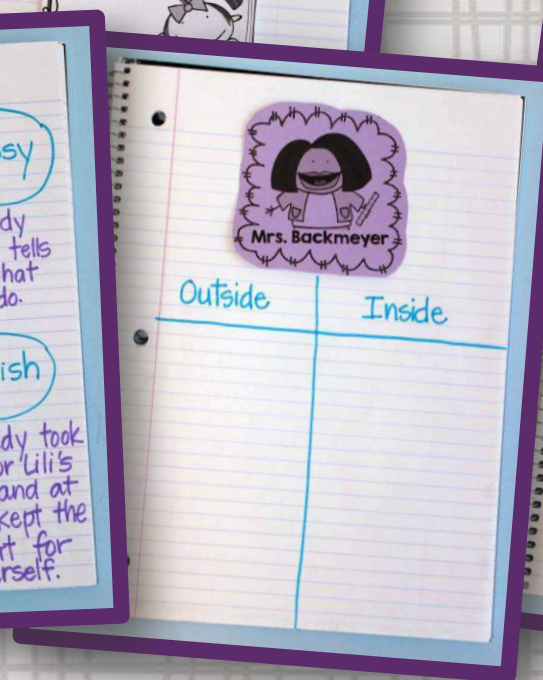 sy
dy
tells
hat
do.
ish
dy took
or Lili's
and at
kept the
rt for
rself.
Mrs. Backmeyer
Outside Inside